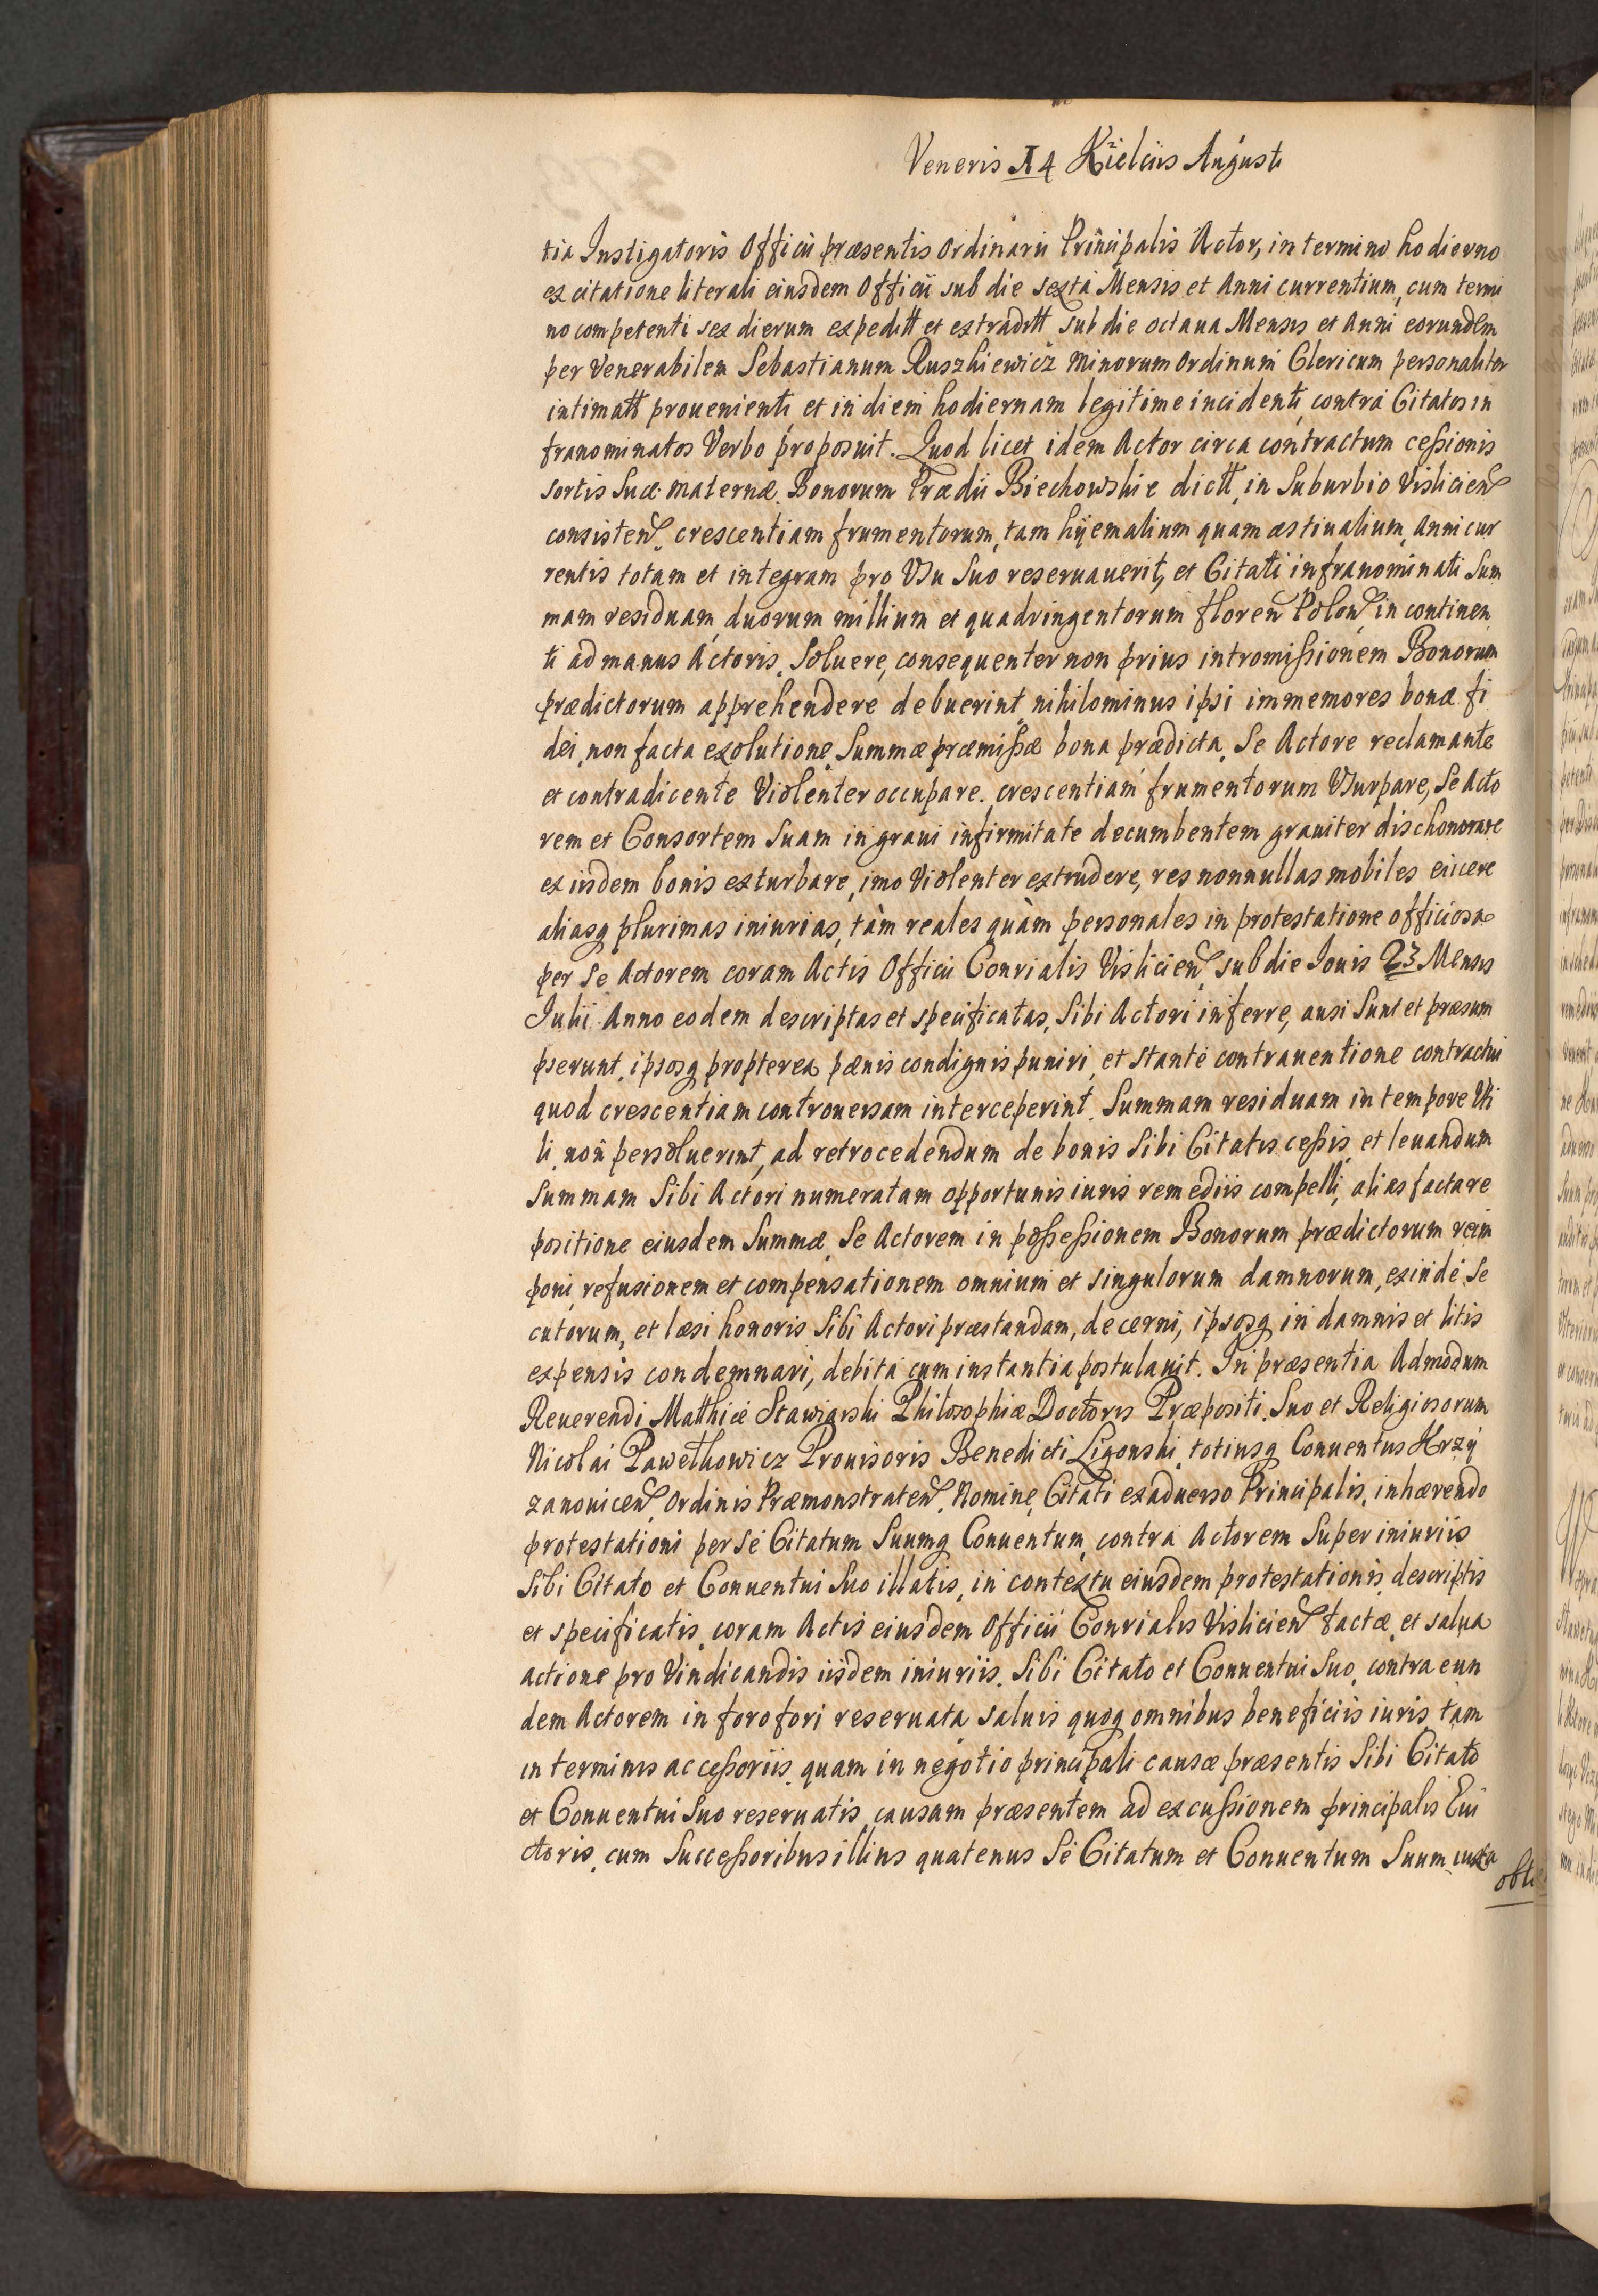 Veneris 14 Kielciis Augusti
tia Instigatoris Officii præsentis Ordinarii Principalis Actor, in termino hodierno
ex citatione literali eiusdem Officii sub die sexta Mensis et Anni currentium, cum termi
no competenti sex dierum expeditt et extraditt sub die octaua Mensis et Anni eorundem
per Venerabilem Sebastianum Ruszkiewicz Minorum Ordinum Clericum personaliter
intimatt prouenienti et in diem hodiernam legitime incidenti, contra Citatos in
franominatos Verbo proposuit. Quod licet idem Actor circa contractum cessionis
sortis Suæ Maternæ, Bonorum Prædii Biechowskie dictt, in Suburbio Vislicien
consisten, crescentiam frumentorum, tam hyemalium quam æstiualium, Anni cur
rentis totam et integram pro Vsu Suo reseruauerit, et Citati infranominati Sum
mam residuam, duorum millium et quadringentorum floren Polon, in continen
ti ad manus Actoris, Soluere, consequenter non prius intromissionem Bonorum
prædictorum apprehendere debuerint, nihilominus ipsi immemores bonæ fi
dei, non facta exolutione, Summæ præmissæ bona prædicta, Se Actore reclamante
et contradicente Violenter occupare, crescentiam frumentorum Vsurpare, Se Acto
rem et Consortem Suam in graui infirmitate decumbentem grauiter dischonorare
ex iisdem bonis exturbare, imo Violenter extrudere, res nonnullas mobiles eiicere
aliasq plurimas iniurias, tàm reales quàm personales in protestatione officiosa
per Se Actorem coram Actis Officii Conrialis Vislicien, sub die Iouis 23 Mensis
Iulii Anno eodem descriptas et specificatas, Sibi Actori inferre, ausi Sunt et præsum
pserunt, ipsosq propterea pænis condignis puniri, et stante contrauentione contractui
quod crescentiam controuersam interceperint, Summam residuam in tempore Vti
li, non persoluerint, ad retrocedendum de bonis Sibi Citatis cessis, et leuandum
Summam Sibi Actori numeratam opportunis iuris remediis compelli, alias facta re
positione eiusdem Summæ, Se Actorem in possessionem Bonorum prædictorum reim
poni, refusionem et compensationem omnium et singulorum damnorum, exinde Se
cutorum, et læsi honoris Sibi Actori præstandam, decerni, ipsosq in damnis et litis
expensis condemnari, debita cum instantia postulauit. In præsentia Admodum
Reuerendi Matthiæ Stawiarski Philosophiæ Doctoris Præpositi, Suo et Religiosorum
Nicolai Pawełkowicz Prouisoris Benedicti Ligonski, totiusq Conuentus Krzy
zanouicen, Ordinis Præmonstraten, Nomine, Citati ex aduerso Principalis, inhærendo
protestationi per Se Citatum Suumq Conuentum, contra Actorem Super iniuriis
Sibi Citato et Conuentui Suo illatis, in contextu eiusdem protestationis descriptis
et specificatis, coram Actis eiusdem Officii Conrialis Vislicien factæ, et salua
actione pro Vindicandis iisdem iniuriis, Sibi Citato et Conuentui Suo, contra eun
dem Actorem in foro fori reseruata saluis quoq omnibus beneficiis iuris, tam
in terminis accessoriis, quam in negotio principali causæ præsentis Sibi Citato
et Conuentui Suo reseruatis, causam præsentem ad excussionem principalis Eui
ctoris, cum Successoribus illius quatenus Se Citatum et Conuentum Suum iuxta